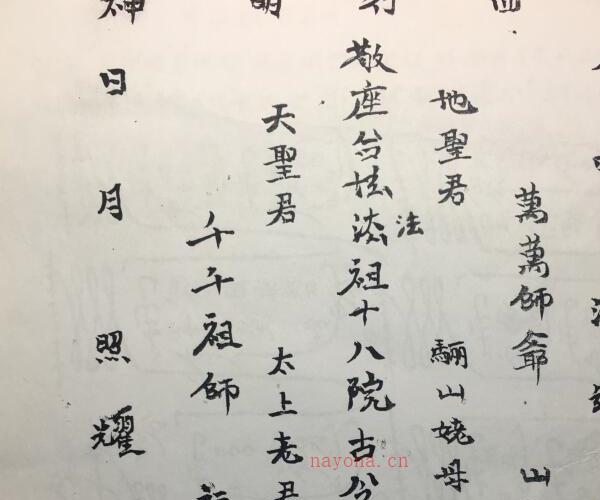 萬萬師爺山
地聖君驪山姥母
敬座台法祖十八院古
明天聖君太上老君
千千祖師
神日月照耀
nayona.cn